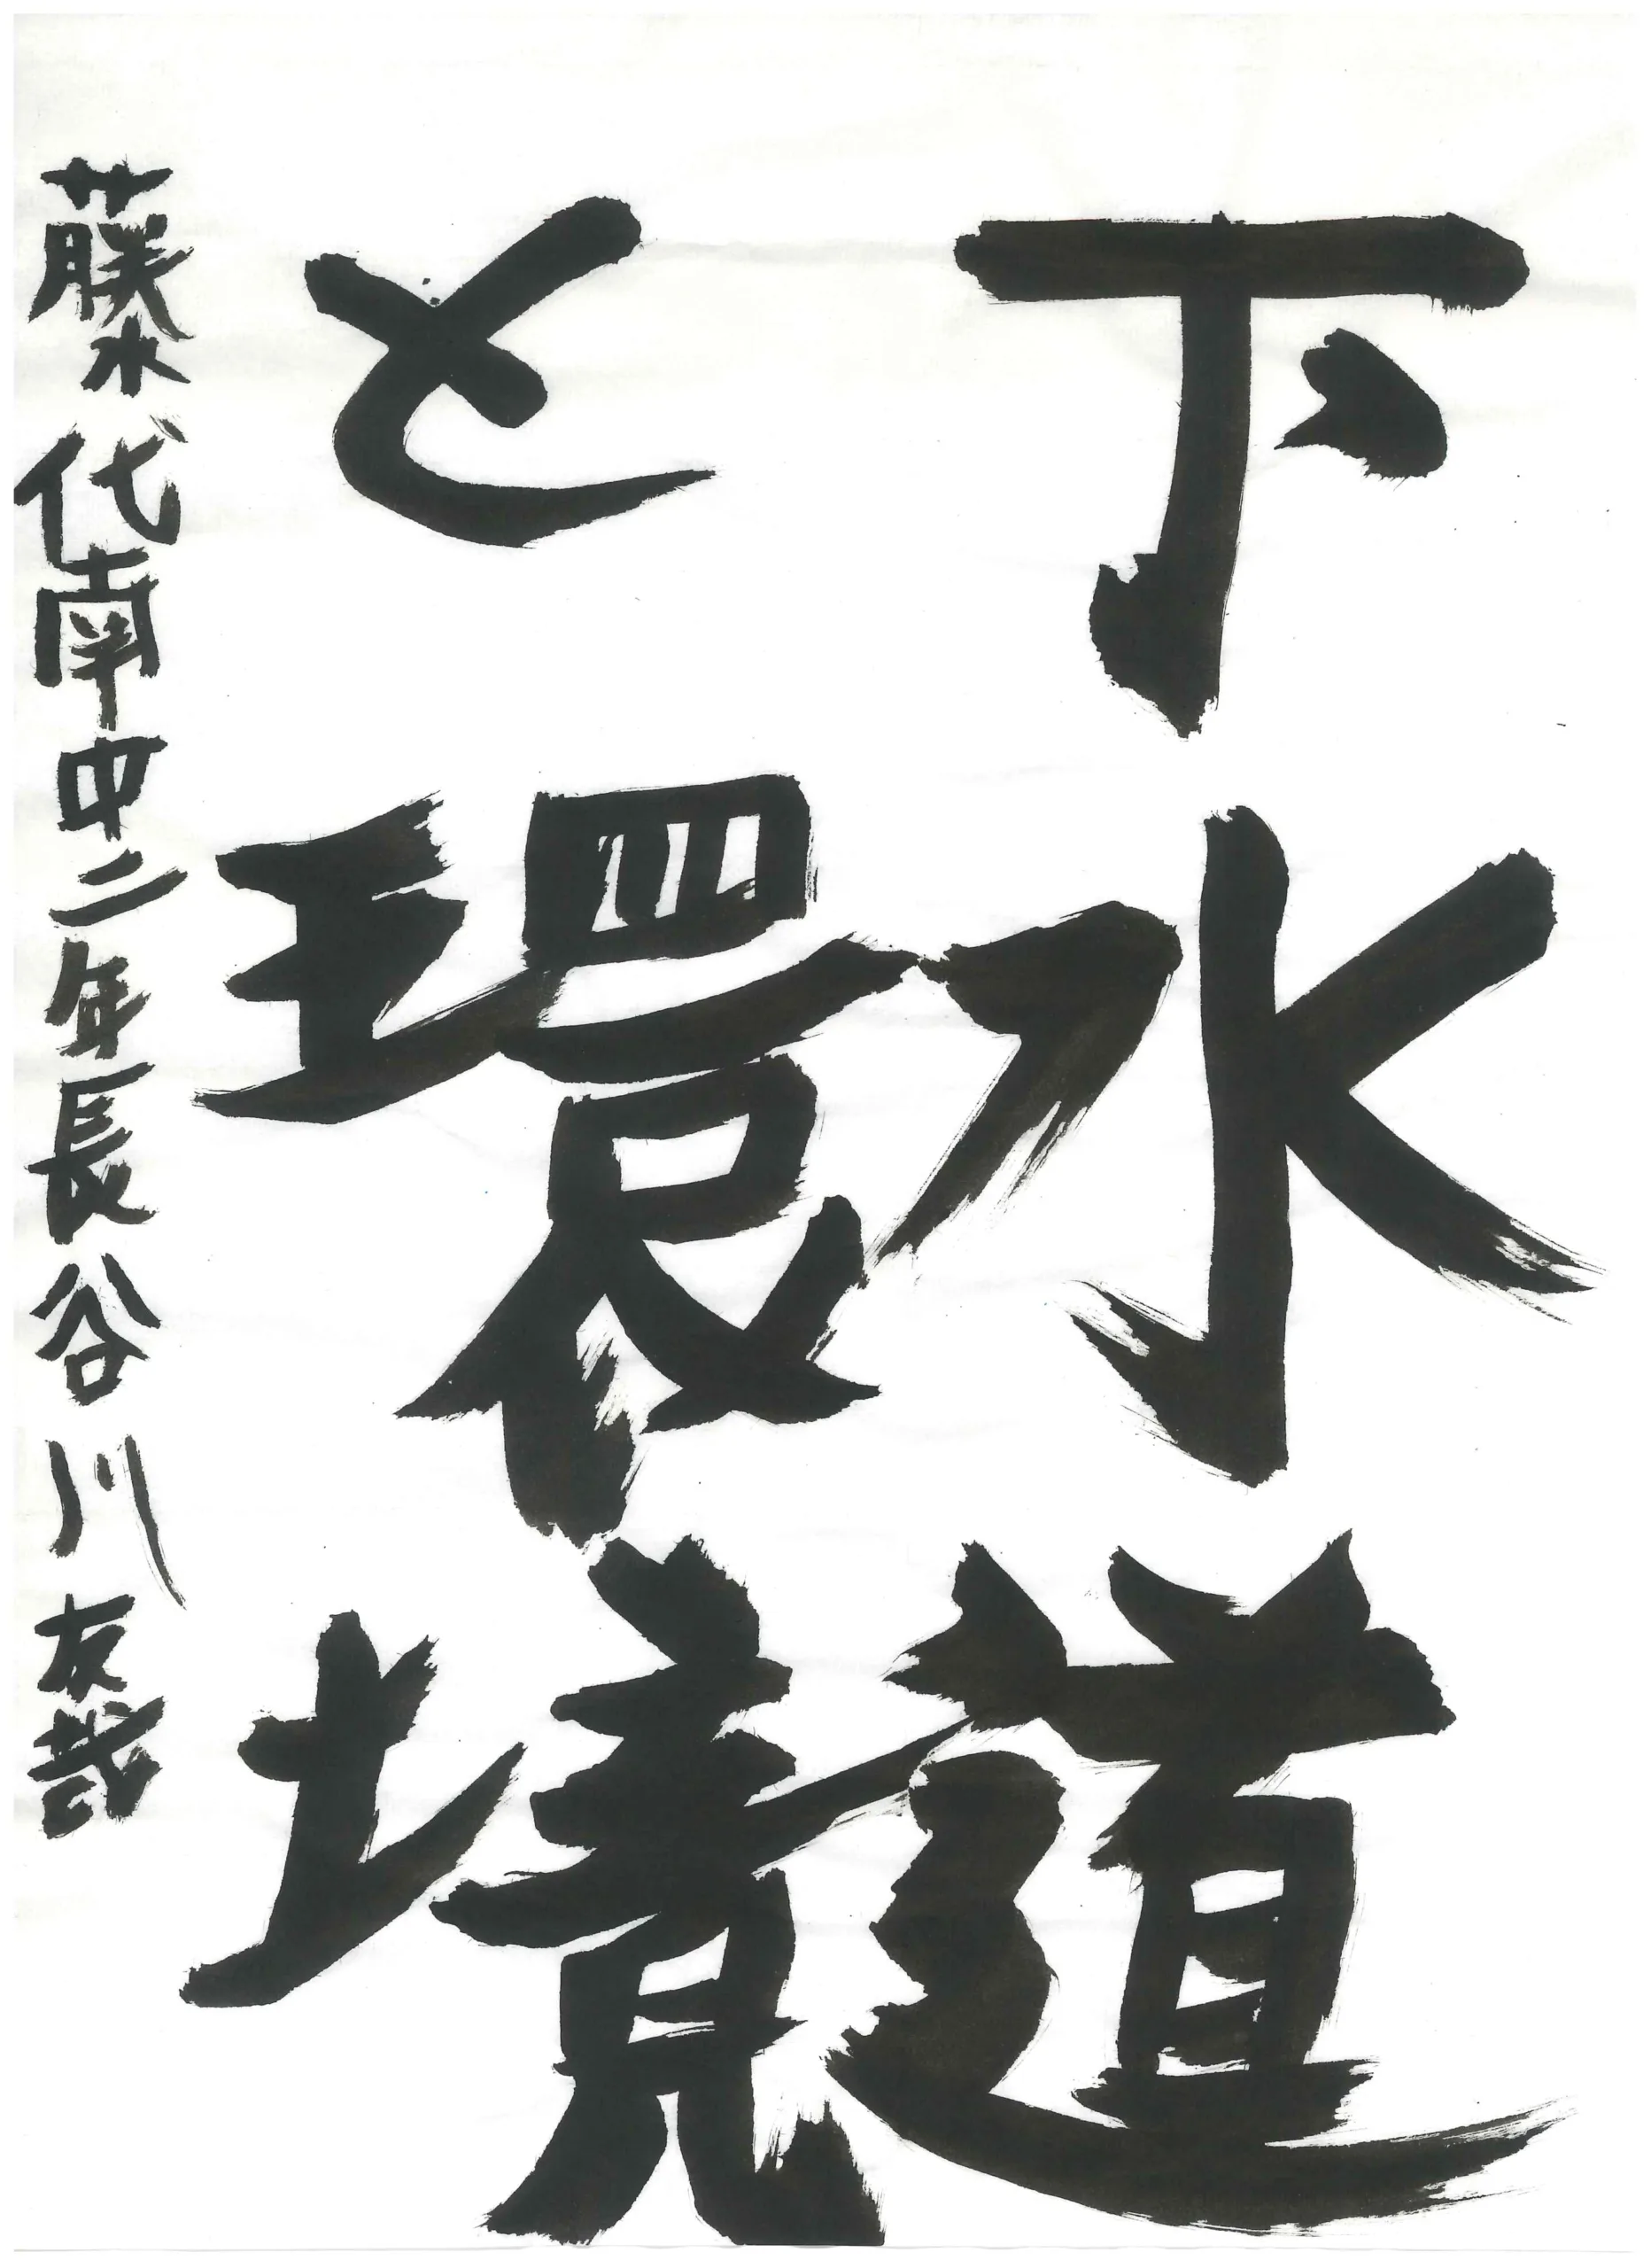 下水道
と環境
藤代南中二年長谷川友哉